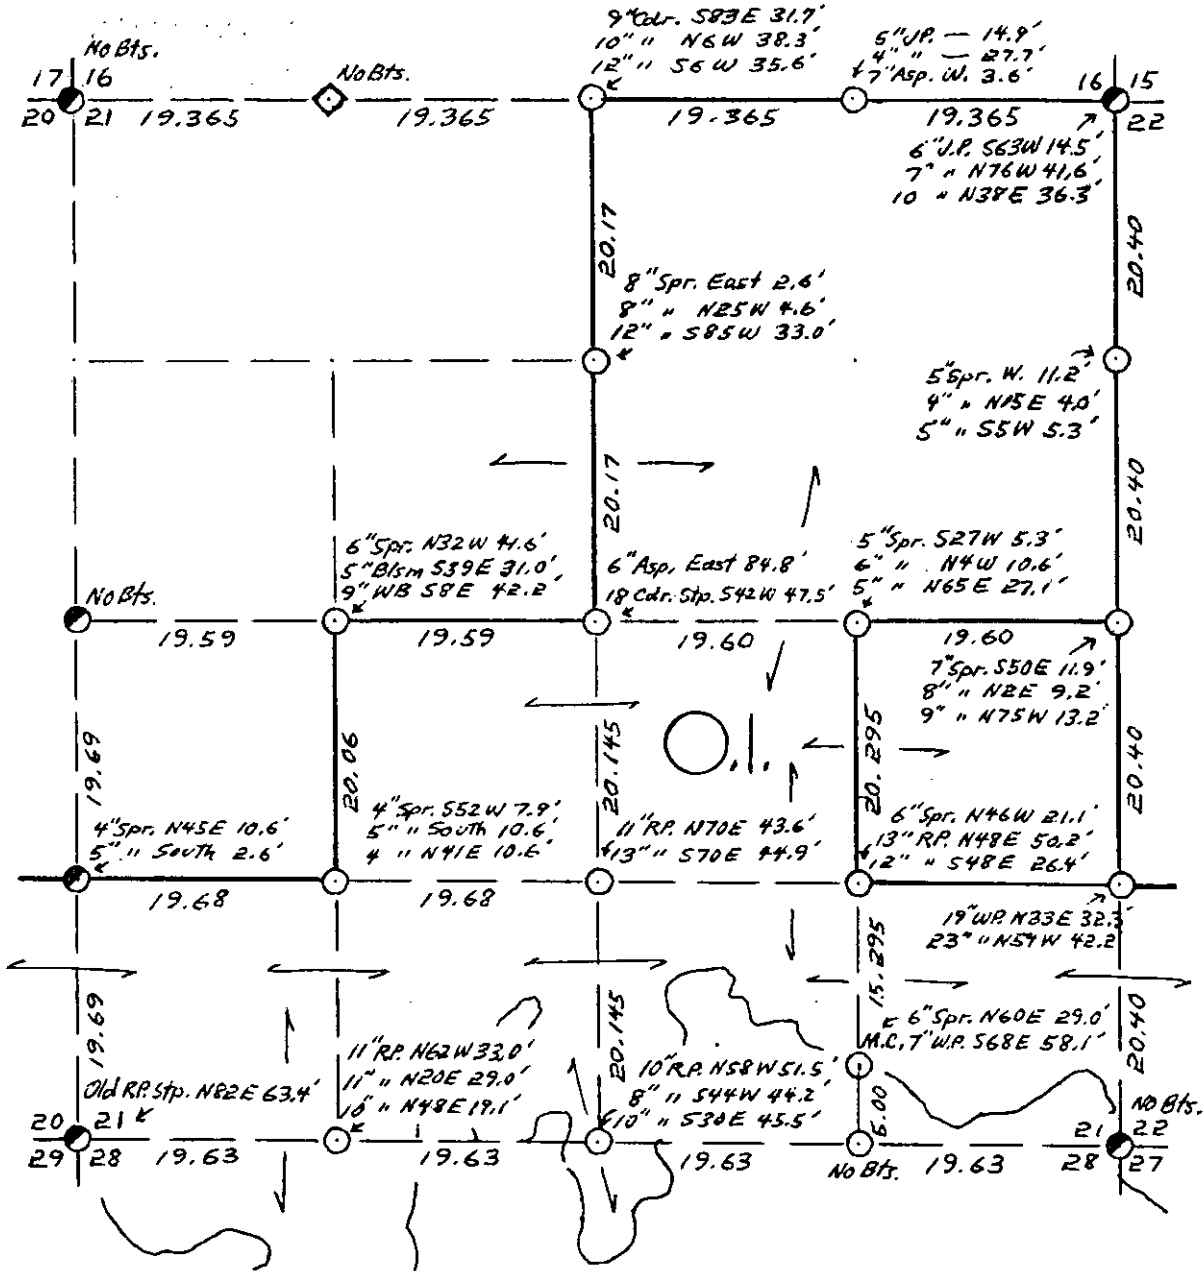 9" Cdr. S83E 31.7'
10" " N6W 38.3'
12" " S6W 35.6'
5" J.P. — 14.9'
4" " — 27.7'
7" Asp. W. 3.6'
No Bts.
17 16
20 21
No Bts.
16 15
22
19.365
19.365
19.365
19.365
6" J.P. S63W 14.5'
7" " N76W 41.6'
10 " N38E 36.3'
20.17
20.40
8" Spr. East 2.6'
8" " N25W 4.6'
12" " S85W 33.0'
5" Spr. W. 11.2'
4" " N15E 4.0'
5" " S5W 5.3'
20.17
20.40
6" Spr. N32W 41.6'
5" Blsm S39E 31.0'
9" WB S8E 42.2'
6" Asp. East 84.8'
18 Cdr. Stp. S42W 47.5'
5" Spr. S27W 5.3'
6" " N4W 10.6'
5" " N65E 27.1'
No Bts.
19.59
19.59
19.60
19.60
7" Spr. S50E 11.9'
8" " N2E 9.2'
9" " N75W 13.2'
O.I.
19.69
20.06
20.145
20.295
20.40
4" Spr. N45E 10.6'
5" " South 2.6'
4" Spr. S52W 7.9'
5" " South 10.6'
4 " N41E 10.6'
11" RP. N70E 43.6'
13" " S70E 44.9'
6" Spr. N46W 21.1'
13" RP. N48E 50.2'
12" " S48E 26.4'
19.68
19.68
19" WP. N33E 32.3'
23" " N54W 42.2'
19.69
20.145
15.295
20.40
6" Spr. N60E 29.0'
M.C. 7" W.P. S68E 58.1'
11" RP. N62W 33.0'
11" " N20E 29.0'
10" " N48E 19.1'
10" RP. N58W 51.5'
8" " S44W 44.2'
10" " S30E 45.5'
5.00
Old RP. Stp. N82E 63.4'
No Bts.
20 21
29 28
21 22
28 27
19.63
19.63
19.63
No Bts.
19.63